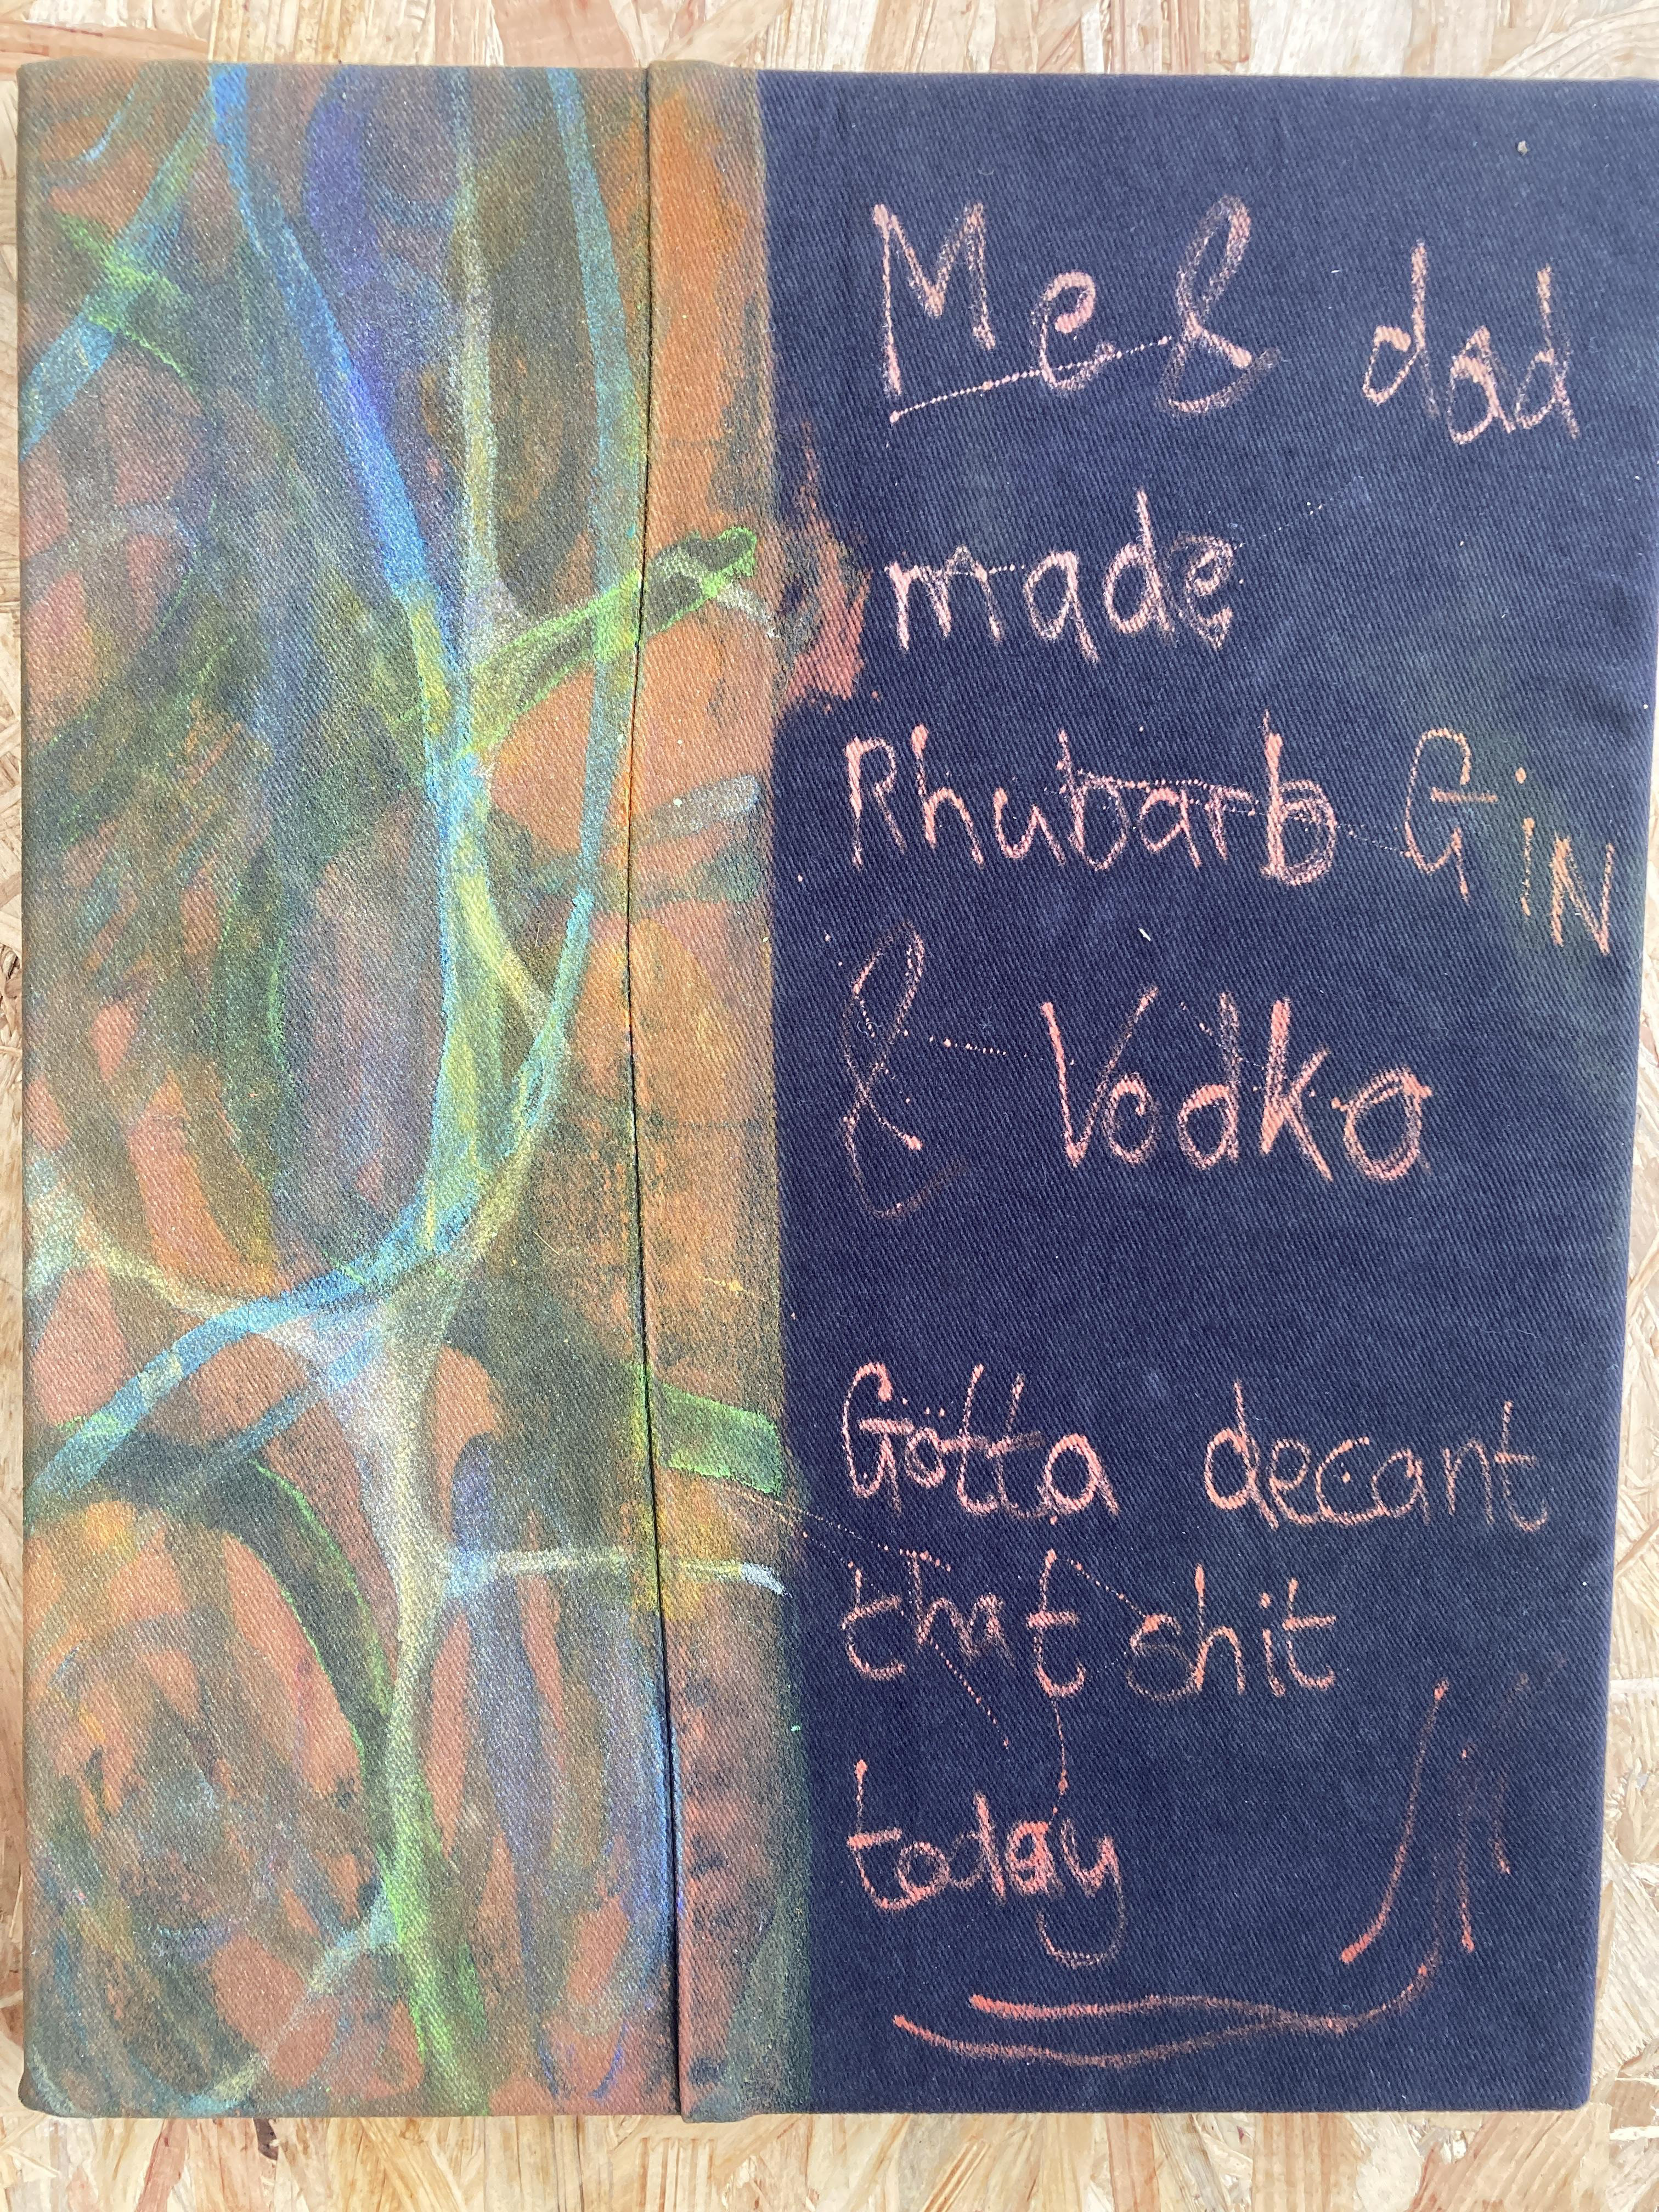 Me & dad
made
Rhubarb GiN
& Vodka
Gotta decant
that shit
today